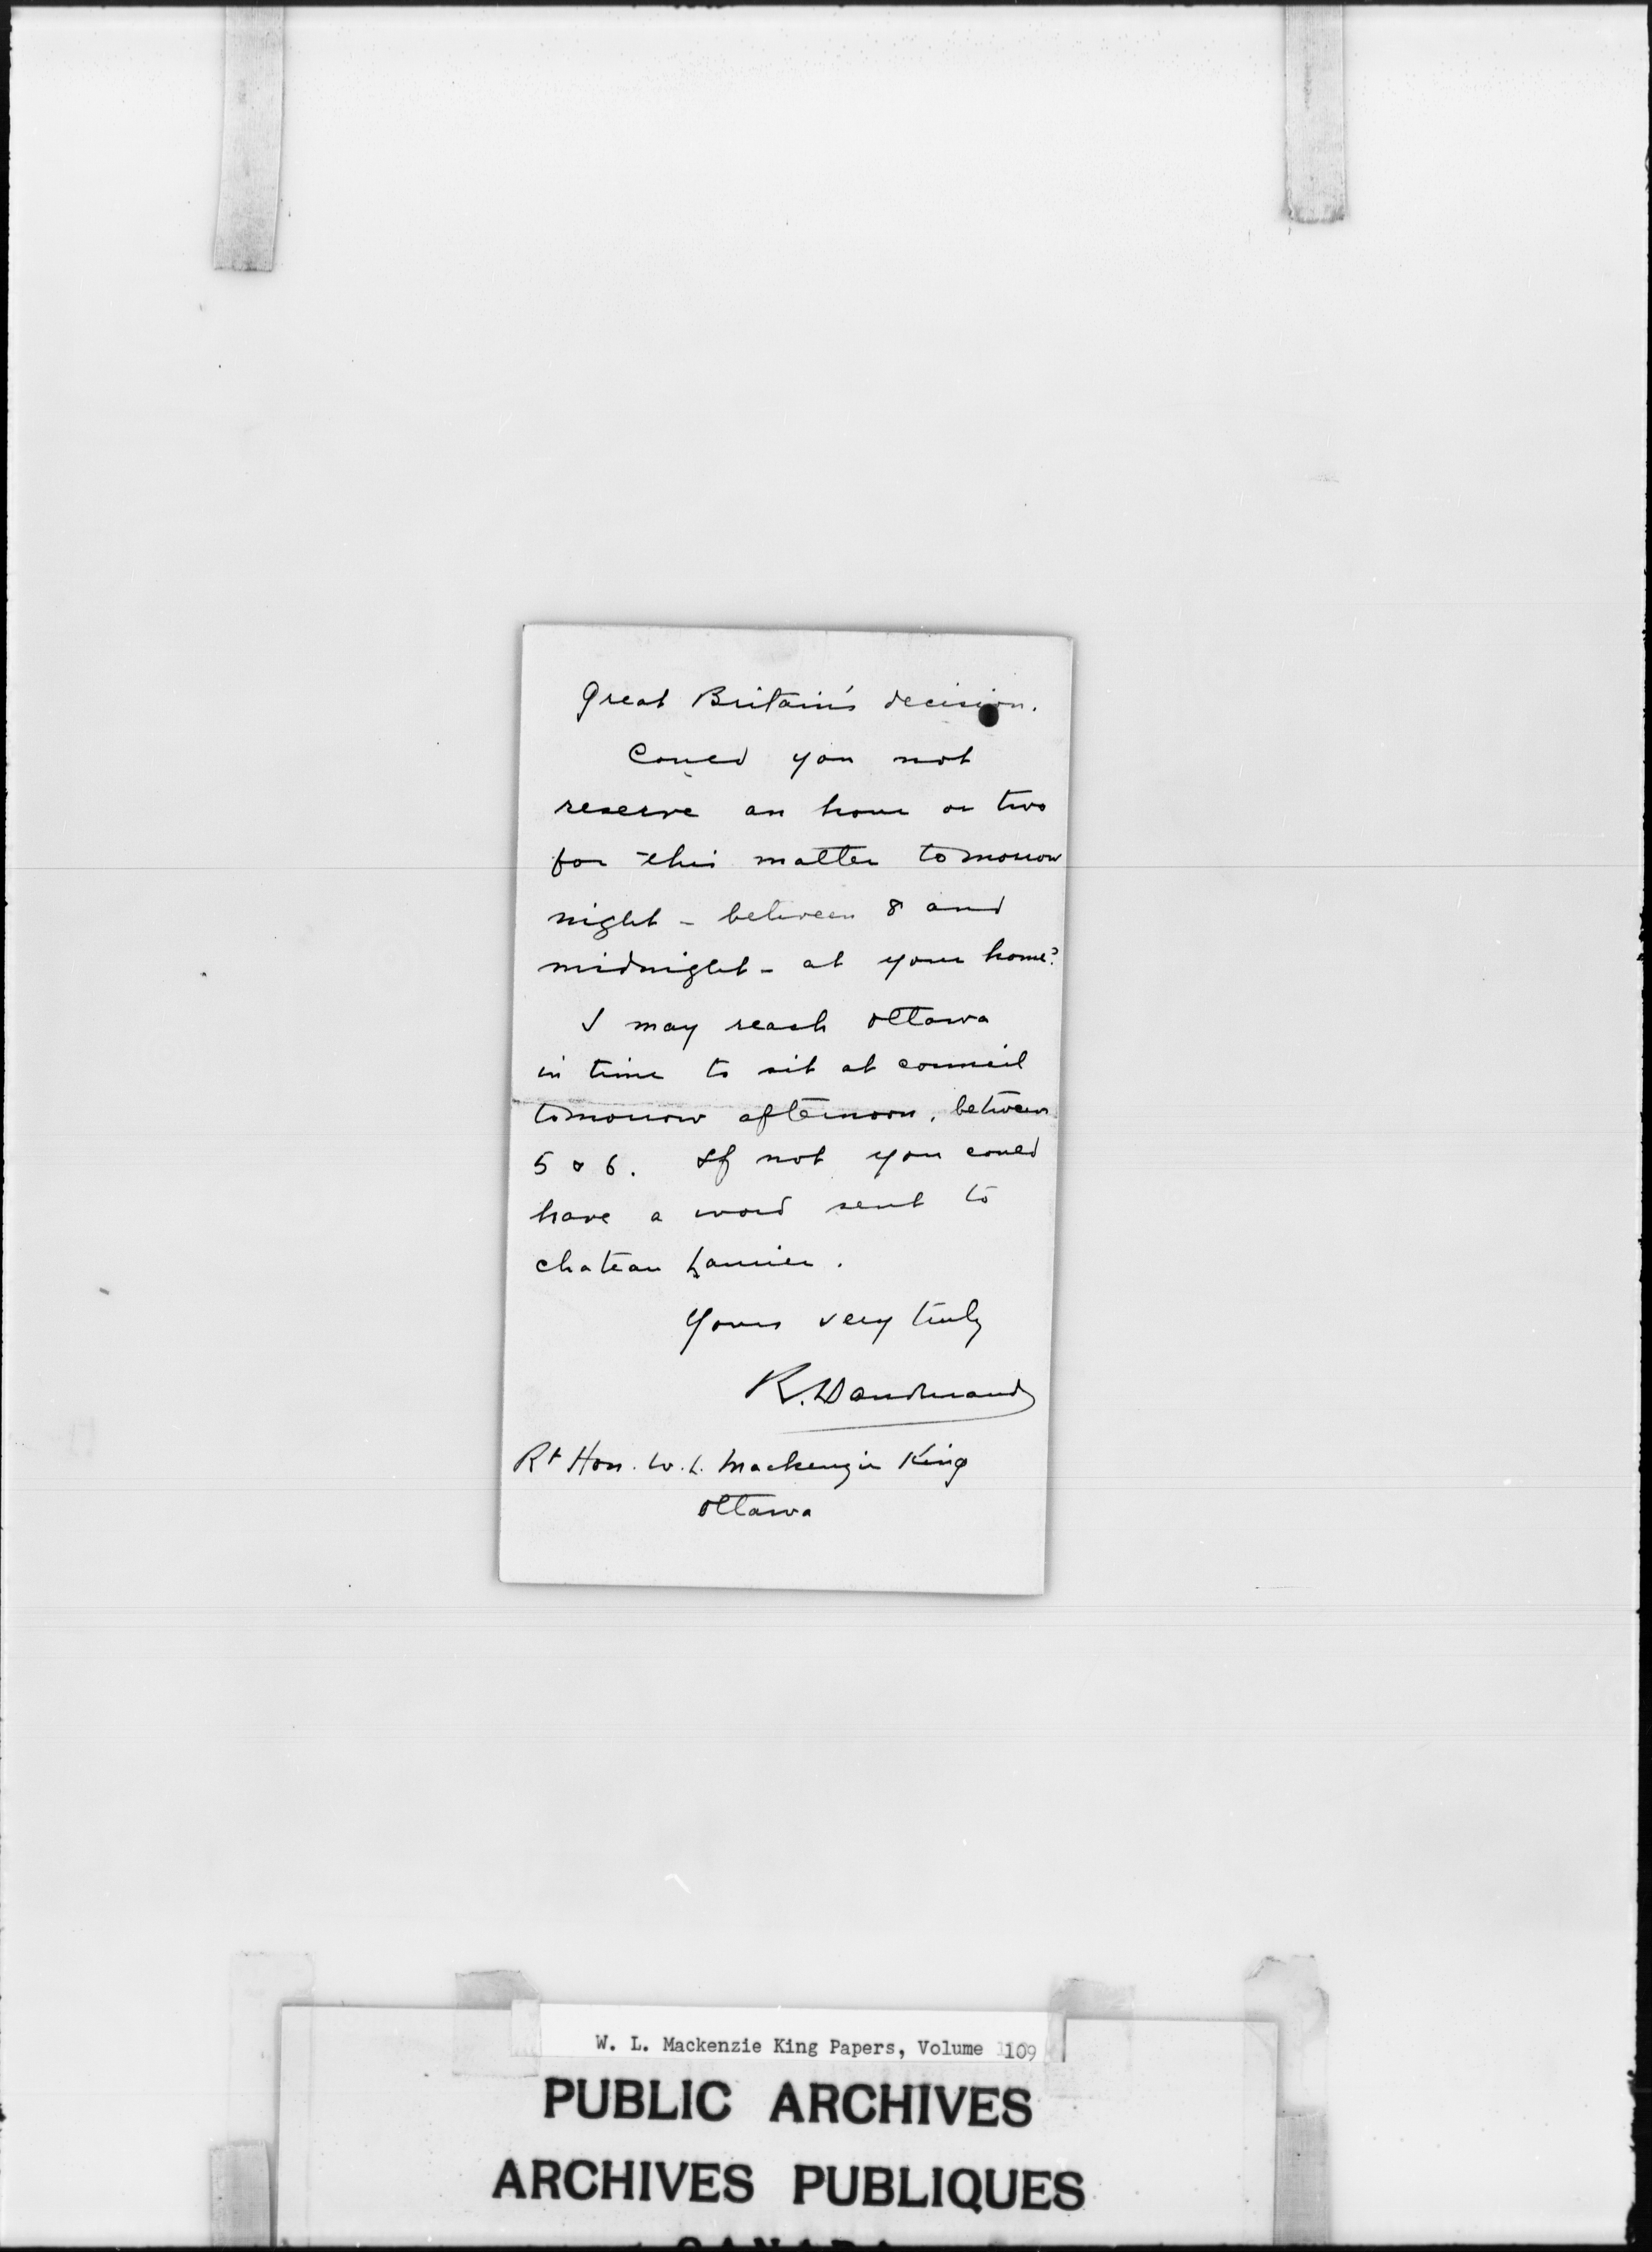 Great Britain's decision.
Could you not
reserve an hour or two
for this matter tomorrow
night - between 8 and
midnight - at your home?
I may reach Ottawa
in time to sit at council
tomorrow afternoon, between
5 & 6. If not you could
have a word sent to
chateau Laurier.
Yours very truly
R. Dandurand
Rt Hon. W. L. Mackenzie King
Ottawa
W. L. Mackenzie King Papers, Volume 109
PUBLIC ARCHIVES
ARCHIVES PUBLIQUES
CANADA